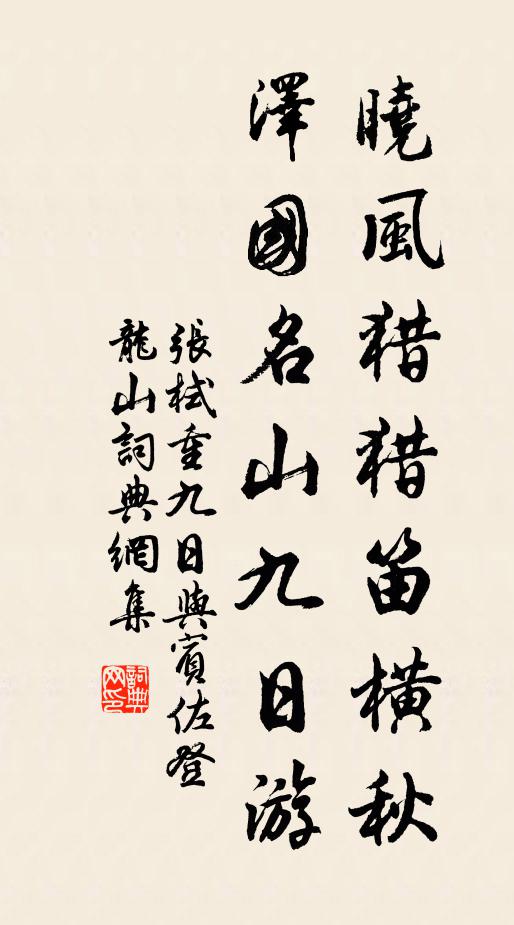 曉風猎猎笛橫秋
澤國名山九日游
張栻重九日與賓佐登
龍山詞典網集
詞典網印